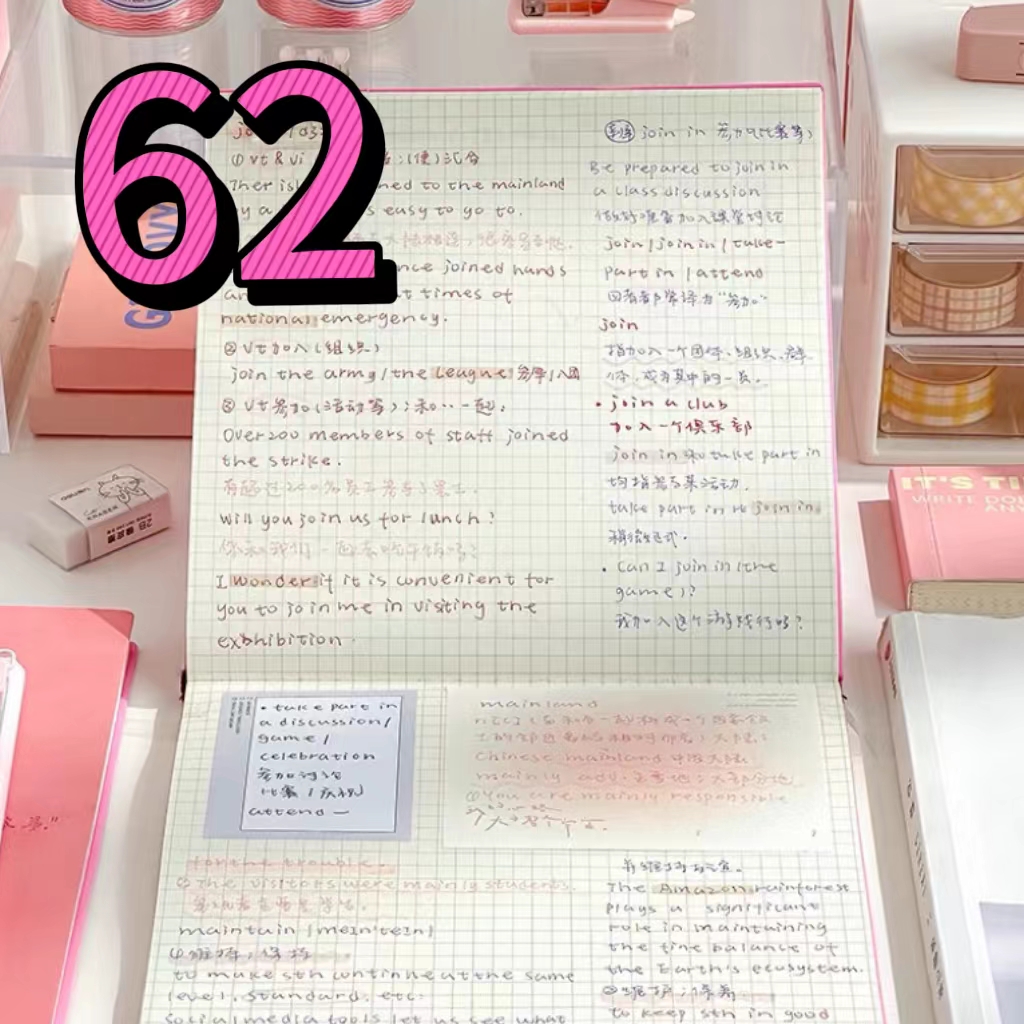 62
① vt & vi
:(使)
Ther isl ned to the mainland
by a s easy to go to.
nce joined hands
an t times of
national emergency.
② vt加入(组织)
join the army/the league 参军/入团
③ vt参加(活动等);和··一起.
Over200 members of staff joined
the strike.
有超过200名员工参与了罢工.
will you join us for lunch?
你和我们一起去吃午饭吗?
I wonder if it is convenient for
you to join me in visiting the
exhibition.
join in 参加(比赛等)
Be prepared to join in
a class discussion
做好准备加入课堂讨论
join/join in/take-
part in/attend
四者都可译为"参加"
join
指加入一个团体、组织、群
体,成为其中的一员.
• join a club
加入一个俱乐部
join in 和 take part in
均指参与某活动.
take part in 比 join in
稍微正式.
• can I join in (the
game)?
我加入这个游戏行吗?
deli
ERASER
2B 橡皮擦
IT'S TI
WRITE DO
ANY
• take part in
a discussion/
game/
celebration
参加讨论
比赛/庆祝
attend—
mainland
Chinese mainland 中国大陆
mainly adv. 主要地;大部分地
①You are mainly responsible
for the trouble.
② The visitors were mainly students.
maintain /meɪn'teɪn/
①维持;保持
to make sth continue at the same
level, standard, etc:
Social media tools let us see what
The Amazon rainforest
plays a significant
role in maintaining
the fine balance of
the Earth's ecosystem.
②维护;保养
to keep sth in good